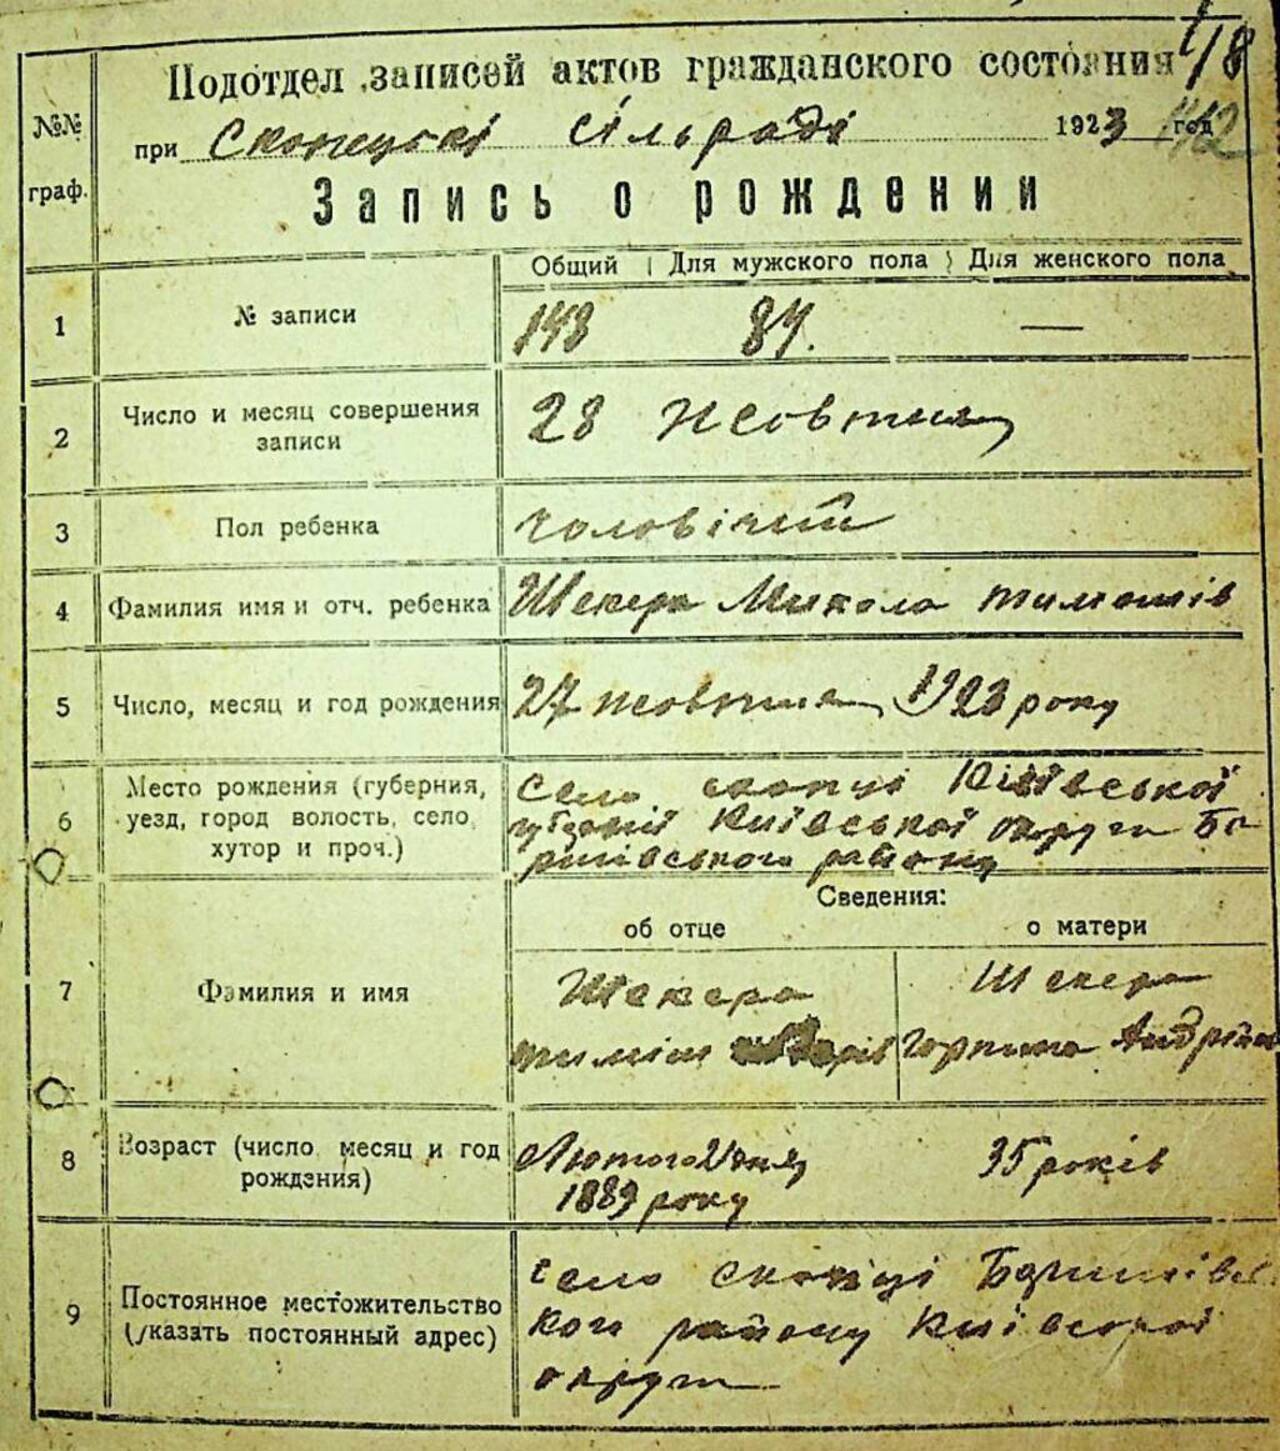 Подотдел записей актов гражданского состояния
№№ граф.
при Скопецькі сільраді 1923 год
118
112
Запись о рождении
Общий Для мужского пола Для женского пола
1 № записи 148 84. —
2 Число и месяц совершения записи 28 жовтня
3 Пол ребенка чоловічий
4 Фамилия имя и отч. ребенка Шекера Микола Тимошів
5 Число, месяц и год рождения 27 жовтня 1923 року
6 Место рождения (губерния, уезд, город волость, село, хутор и проч.)
Село скопці Київської
губернії Київської округи Бо
ришівського району
Сведения:
об отце о матери
7 Фамилия и имя
Шекера Шекера
тиміш Горпина Андрій
8 Возраст (число месяц и год рождения)
Лютого дня 35 років
1889 року
9 Постоянное местожительство (указать постоянный адрес)
село скопці Боришівсь
кого району Київської
округи